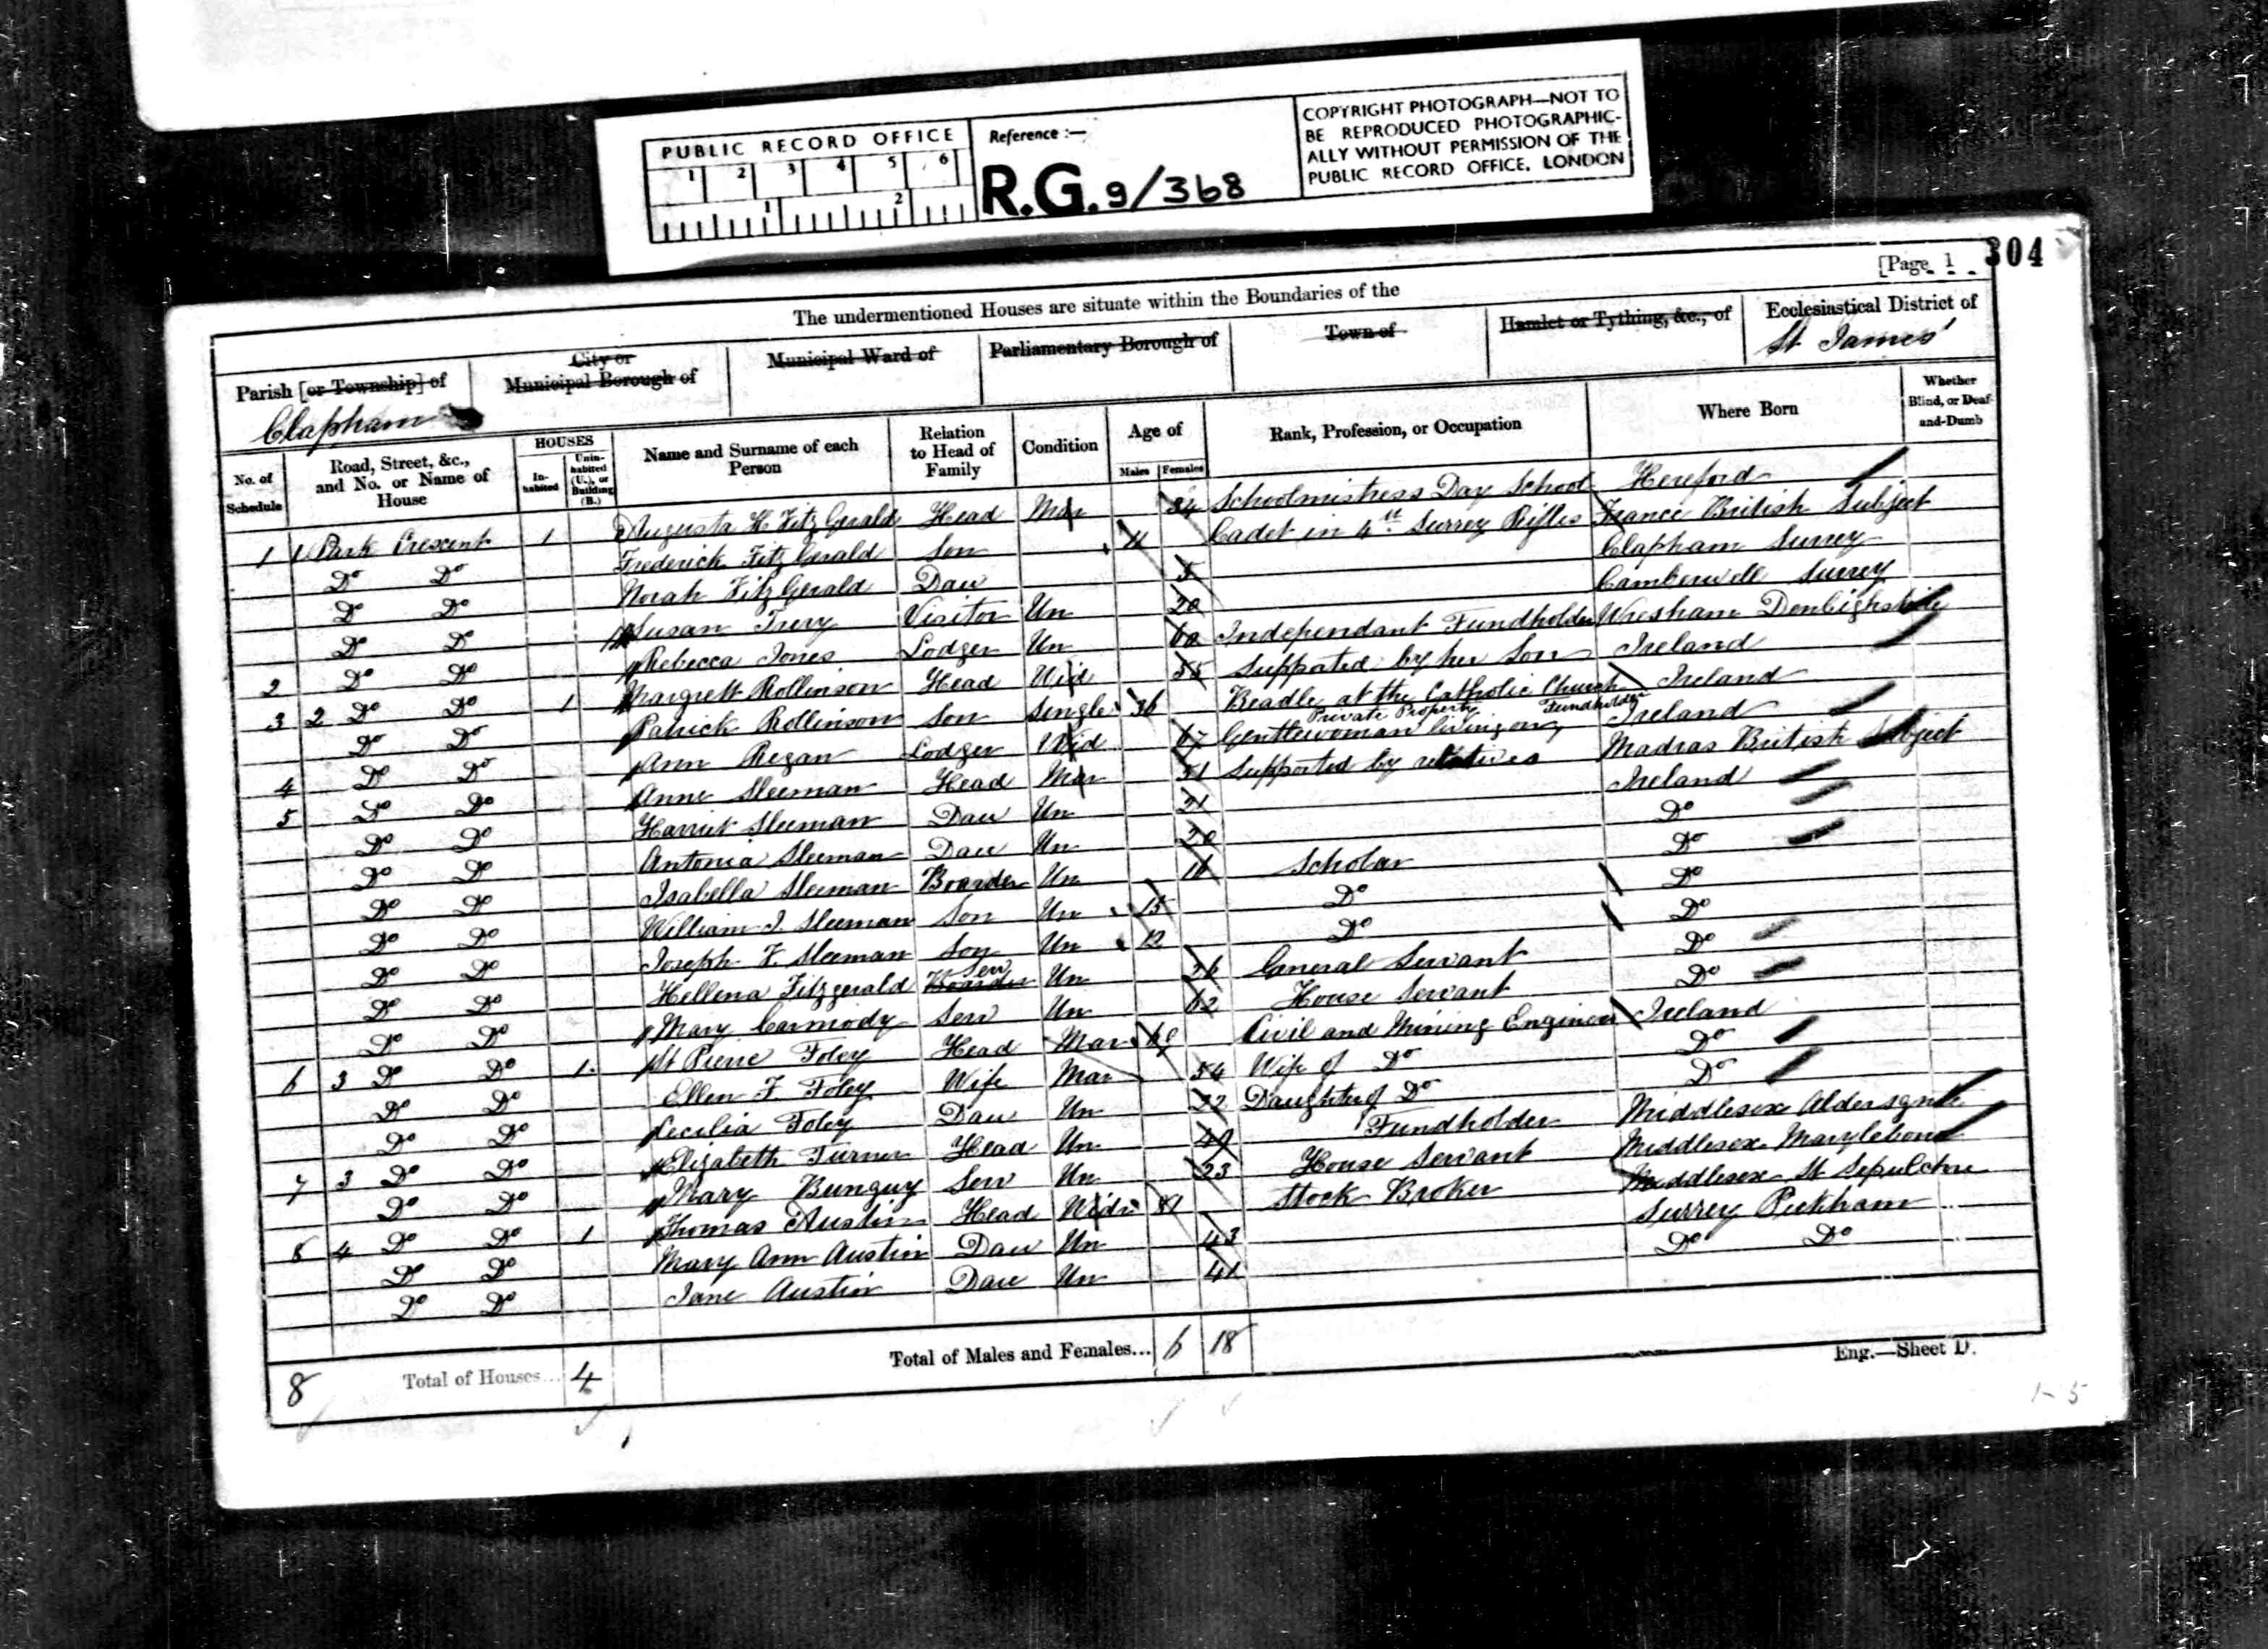 PUBLIC RECORD OFFICE
1 2 3 4 5 6
1 2
Reference :—
R.G. 9/368
COPYRIGHT PHOTOGRAPH—NOT TO
BE REPRODUCED PHOTOGRAPHIC-
ALLY WITHOUT PERMISSION OF THE
PUBLIC RECORD OFFICE, LONDON
[Page 1
304
The undermentioned Houses are situate within the Boundaries of the
Parish [or Township] of Clapham
City or Municipal Borough of
Municipal Ward of
Parliamentary Borough of
Town of
Hamlet or Tything, &c., of
Ecclesiastical District of St James'
No. of Schedule
Road, Street, &c., and No. or Name of House
HOUSES
In-habited
Unin-habited (U.), or Building (B.)
Name and Surname of each Person
Relation to Head of Family
Condition
Age of
Males Females
Rank, Profession, or Occupation
Where Born
Whether Blind, or Deaf-and-Dumb
1 1 Park Crescent 1 Augusta H FitzGerald Head Mar 34 Schoolmistress Day School Hereford
Do Do Frederick FitzGerald Son 11 Cadet in 4th Surrey Rifles France British Subject
Do Do Norah FitzGerald Dau 5 Clapham Surrey
Do Do Susan Visitor Un 20 Camberwell Surrey
2 Do Do Rebecca Jones Lodger Un 60 Independant Fundholder Wresham Denbighshire
3 2 Do Do 1 Margrett Rollinson Head Wid 55 Supported by her Son Ireland
Do Do Patrick Rollinson Son Single 36 Beadle at the Catholic Church Ireland
4 Do Do Ann Regan Lodger Wid 67 Gentlewoman living on Private Property Fundholder Ireland
5 Do Do Anne Sleeman Head Mar 51 Supported by relatives Madras British Subject
Do Do Harriet Sleeman Dau Un 21 Ireland
Do Do Antonia Sleeman Dau Un 20 Do
Do Do Isabella Sleeman Boarder Un 16 Scholar Do
Do Do William J. Sleeman Son Un 15 Do Do
Do Do Joseph F. Sleeman Son Un 12 Do Do
Do Do Hellena Fitzgerald Boarder Serv Un 26 General Servant Do
Do Do Mary Carmody Serv Un 62 House Servant Do
6 3 Do Do 1 St Pierre Foley Head Mar 60 Civil and Mining Engineer Ireland
Do Do Ellen F Foley Wife Mar 54 Wife of Do Do
Do Do Cecilia Foley Dau Un 22 Daughter of Do Do
7 3 Do Do Elizabeth Turner Head Un 49 Fundholder Middlesex Aldersgate
Do Do Mary Bunguy Serv Un 23 House Servant Middlesex Marylebone
8 4 Do Do 1 Thomas Austin Head Widr 81 Stock Broker Middlesex St Sepulchre
Do Do Mary Ann Austin Dau Un 43 Surrey Peckham
Do Do Jane Austin Dau Un 41 Do Do
8 Total of Houses... 4 Total of Males and Females... 6 18
Eng.—Sheet D.
1-5